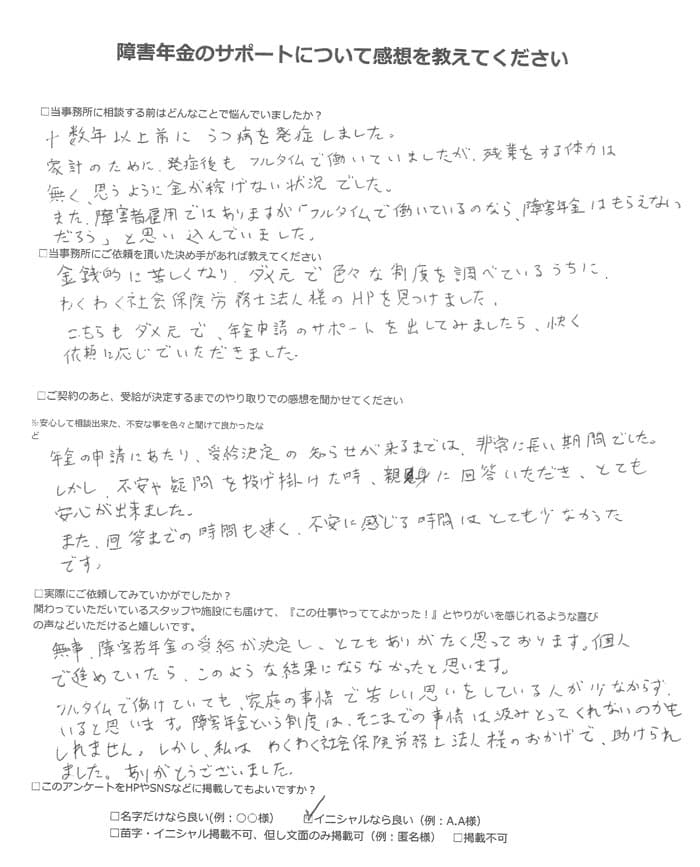 障害年金のサポートについて感想を教えてください
□当事務所に相談する前はどんなことで悩んでいましたか？
十数年以上前に うつ病を発症しました。
家計のために、発症後も フルタイムで働いていましたが、残業をする体力は
無く、思うように金が稼げない状況でした。
また、障害者雇用ではありますが「フルタイムで働いているのなら、障害年金はもらえない
だろう」と思い込んでいました。
□当事務所にご依頼を頂いた決め手があれば教えてください
金銭的に苦しくなり、ダメ元で色々な制度を調べているうちに、
わくわく社会保険労務士法人様のHPを見つけました。
こちらもダメ元で、年金申請のサポートを出してみましたら、快く
依頼に応じでいただきました。
□ご契約のあと、受給が決定するまでのやり取りでの感想を聞かせてください
※安心して相談出来た、不安な事を色々と聞けて良かったな
ど
年金の申請にあたり、受給決定の知らせが来るまでは、非常に長い期間でした。
しかし、不安や疑問を投げ掛けた時、親身に回答いただき、とても
安心が出来ました。
また、回答までの時間も速く、不安に感じる時間はとても少なかった
です。
□実際にご依頼してみていかがでしたか？
関わっていただいているスタッフや施設にも届けて、『この仕事やっててよかった！』とやりがいを感じれるような喜び
の声などいただけると嬉しいです。
無事、障害者年金の受給が決定し、とてもありがたく思っております。個人
で進めていたら、このような結果にならなかったと思います。
フルタイムで働けていても、家庭の事情で苦しい思いをしている人が少なからず、
いると思います。障害年金という制度は、そこまでの事情は汲みとってくれないのかも
しれません。しかし、私は わくわく社会保険労務士法人様のおかげで、助けられ
ました。ありがとうございました。
□このアンケートをHPやSNSなどに掲載してもよいですか？
□名字だけなら良い(例：○○様) ☑イニシャルなら良い（例：A.A様）
□苗字・イニシャル掲載不可、但し文面のみ掲載可（例：匿名様） □掲載不可